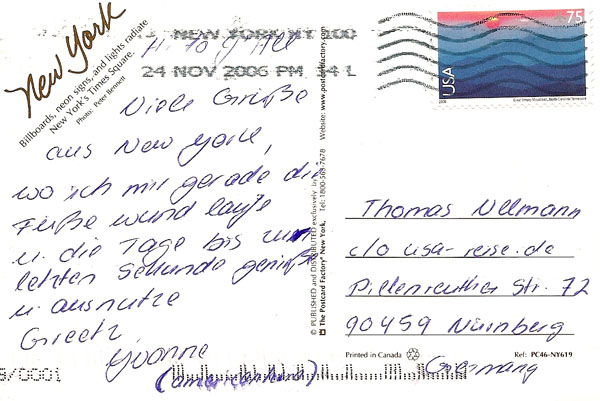 New York
Billboards, neon signs, and lights radiate
New York's Times Square.
Photo: Peter Bennett
NEW YORK NY 100
24 NOV 2006 PM 14 L
Hi to y'All
Viele Grüße
aus New York,
wo ich mir gerade die
Füße wund laufe
u. die Tage bis zur
letzten Sekunde genieße
u. ausnutze
Greetz
Yvonne
(americanhero)
© PUBLISHED and DISTRIBUTED exclusively by
The Postcard Factory® New York, Tel: 1800-568-7678 Website: www.postcardfactory.com
75
USA
2006
Great Smoky Mountains, North Carolina/Tennessee
Thomas Ullmann
c/o usa-reise.de
Pillenreuther Str. 72
90459 Nürnberg
Germany
Printed in Canada
Ref: PC46-NY619
8/0001